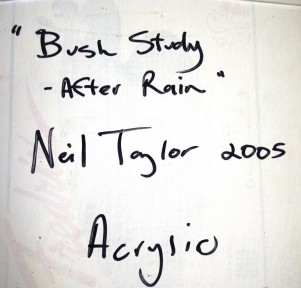 "Bush Study
- After Rain"
Neil Taylor 2005
Acrylic